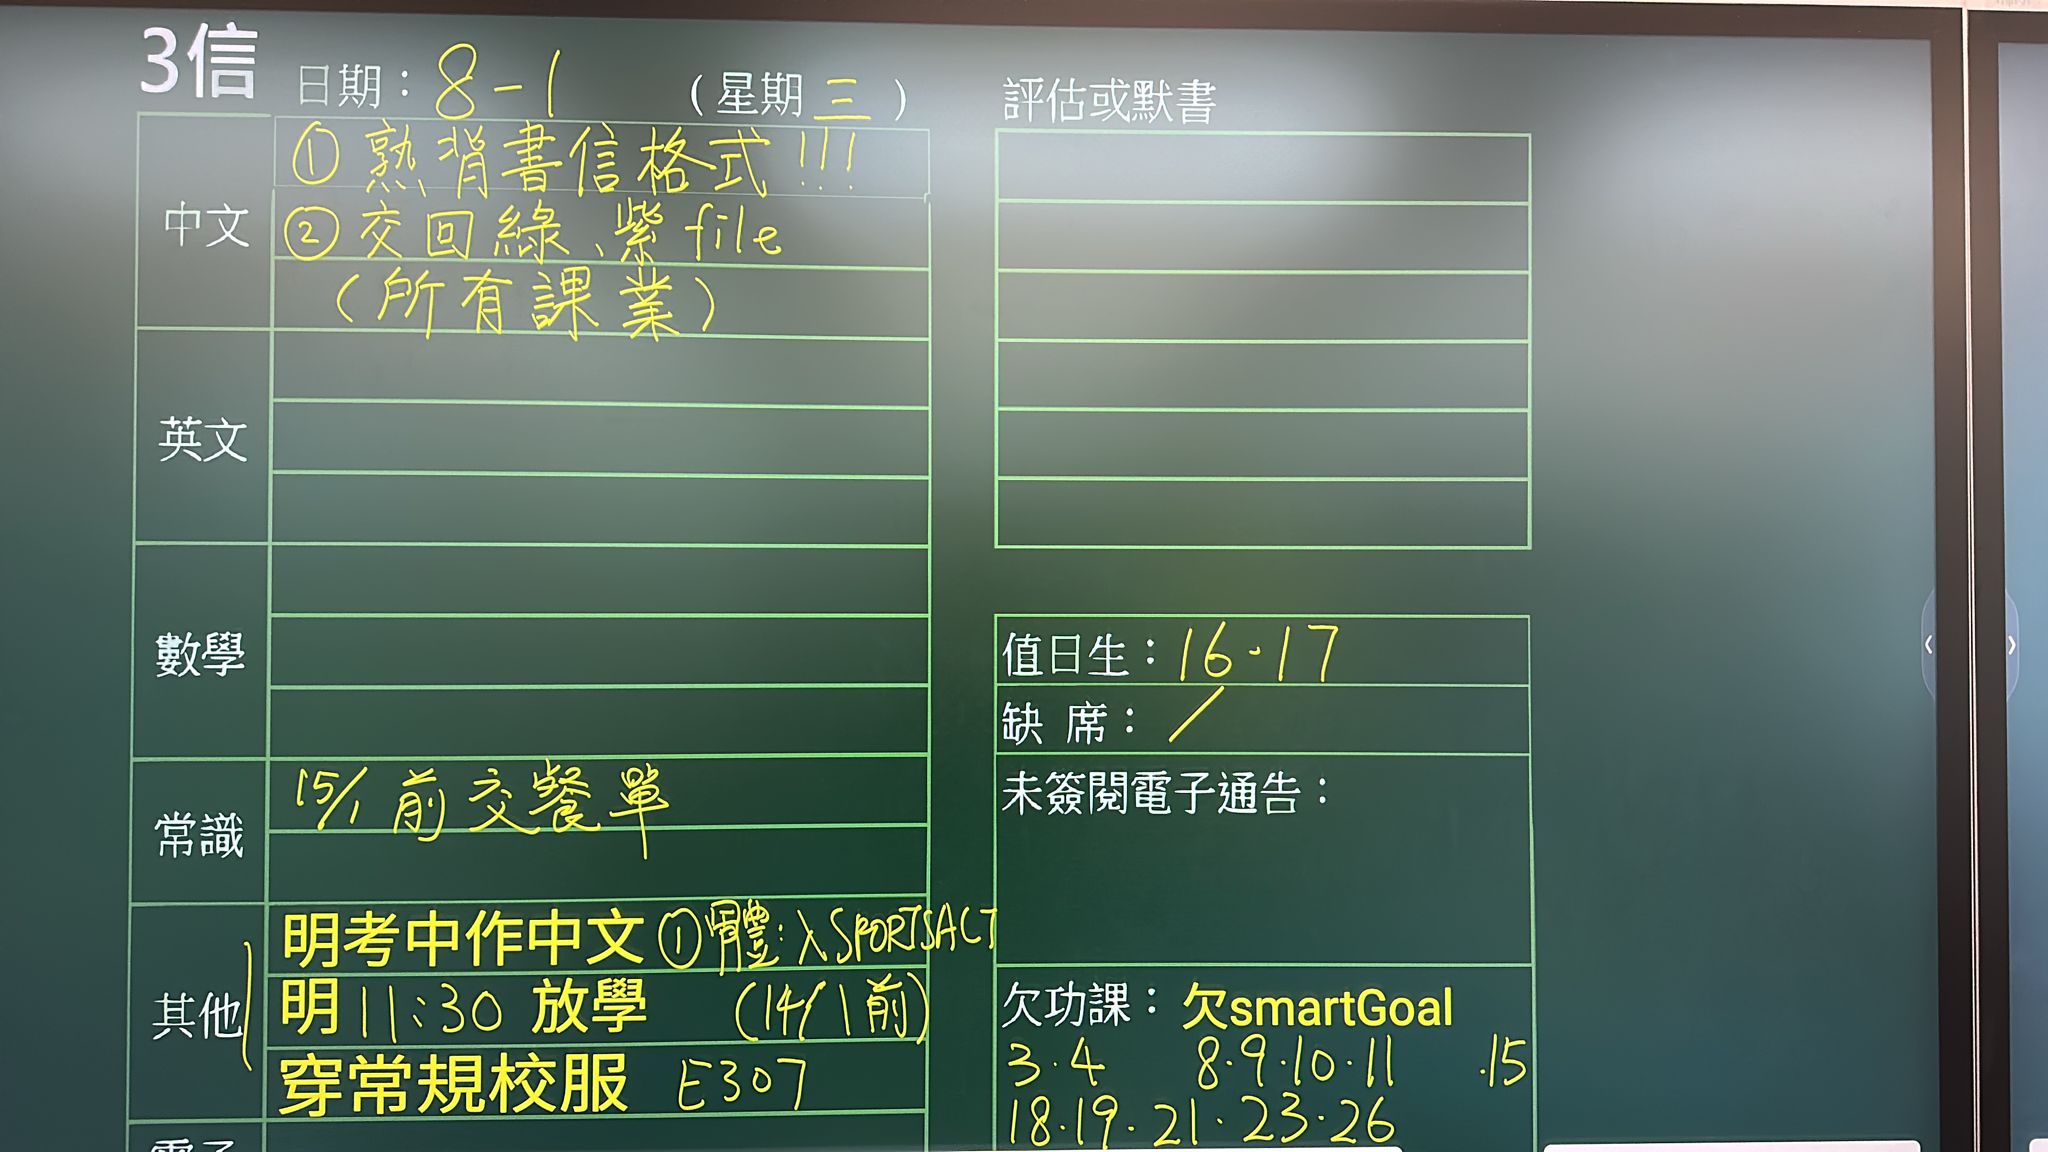 3信 日期：8-1 （星期三）
中文
① 熟背書信格式!!!
② 交回綠、紫file
（所有課業）
英文
數學
常識
15/1 前交餐單
其他
明考中作中文 ①體：入SPORTSACT
明11:30 放學 (14/1前)
穿常規校服 E307
電子
評估或默書
值日生：16.17
缺 席：/
未簽閱電子通告：
欠功課：欠smartGoal
3.4 8.9.10.11 .15
18.19.21.23.26